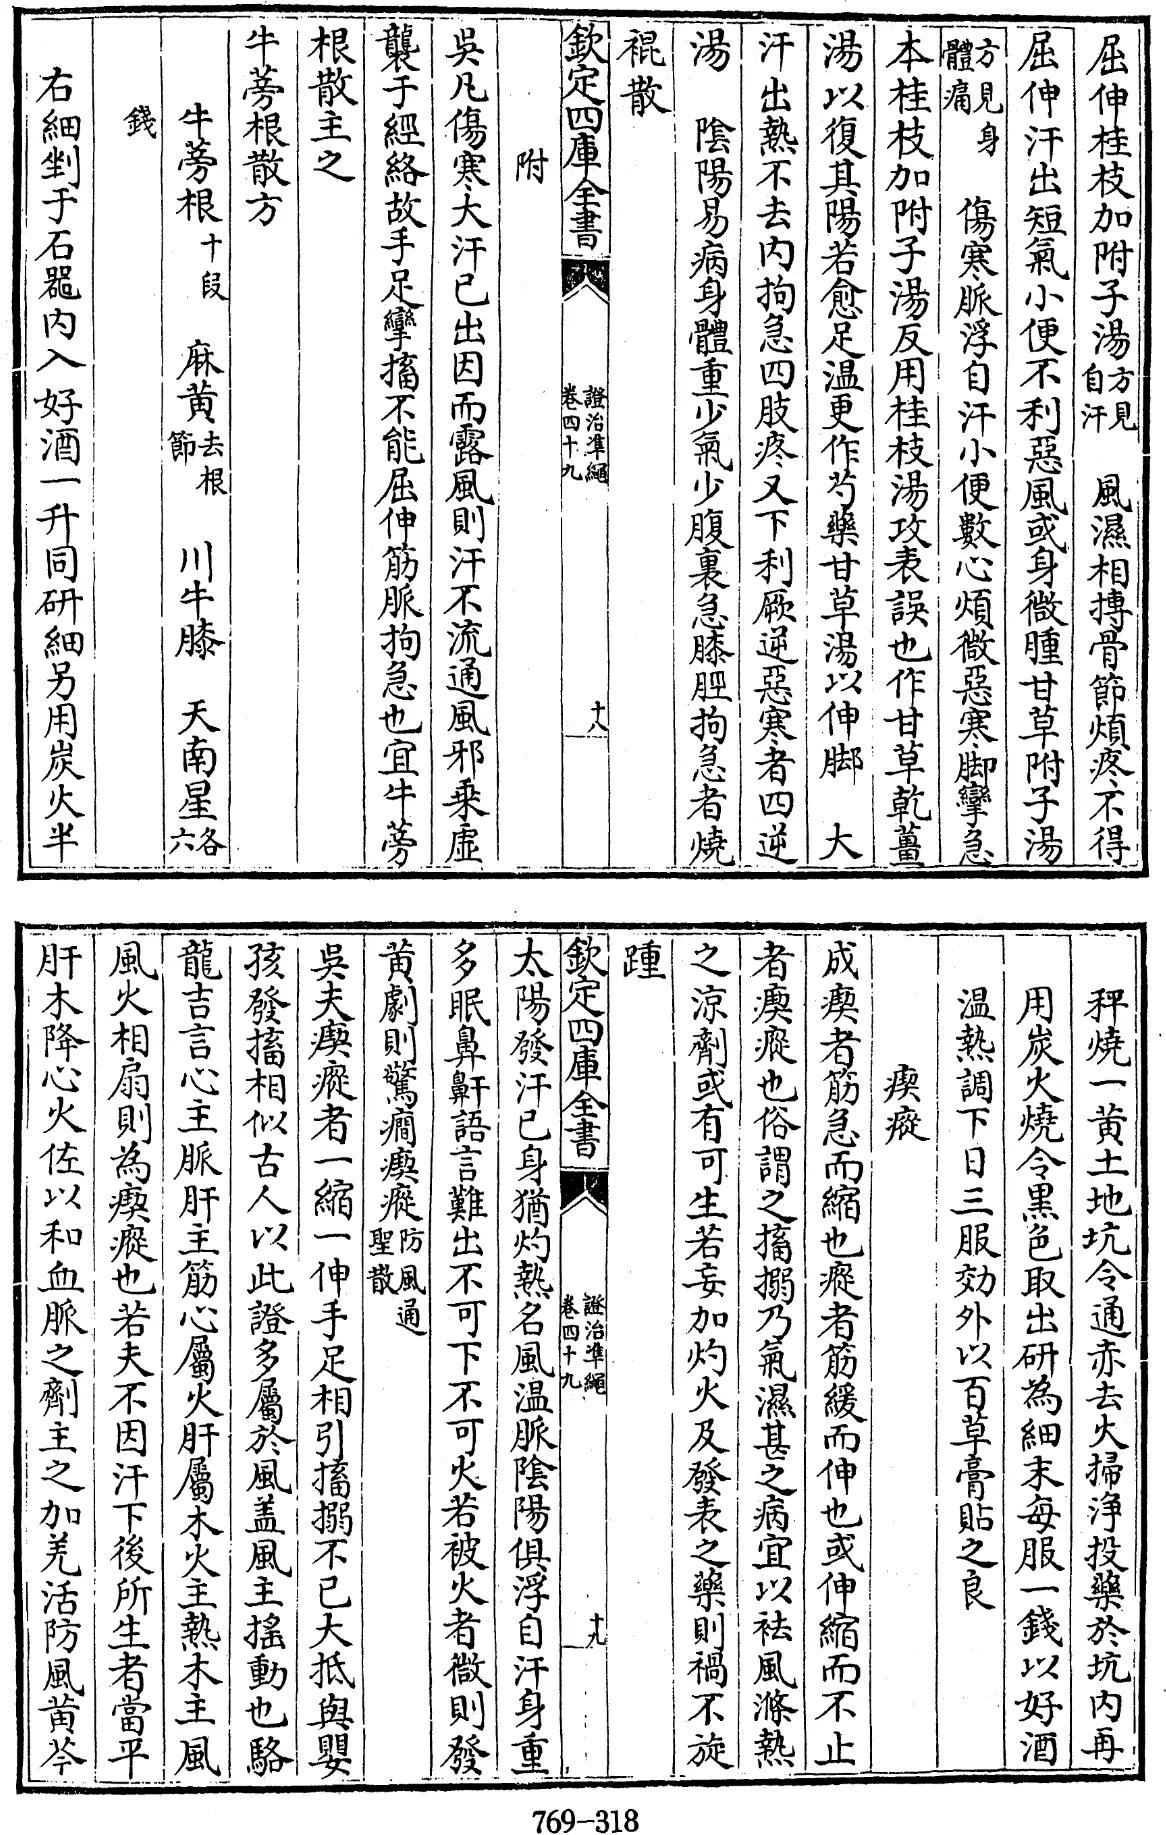 屈伸桂枝加附子湯方見自汗　風濕相搏骨節煩疼不得
屈伸汗出短氣小便不利惡風或身微腫甘草附子湯
方見身體痛　傷寒脈浮自汗小便數心煩微惡寒脚攣急
本桂枝加附子湯反用桂枝湯攻表誤也作甘草乾薑
湯以復其陽若愈足温更作芍藥甘草湯以伸脚　大
汗出熱不去内拘急四肢疼又下利厥逆惡寒者四逆
湯　陰陽易病身體重少氣少腹裏急膝脛拘急者燒
裩散
欽定四庫全書　證治準繩卷四十九　十八
附
吳凡傷寒大汗已出因而露風則汗不流通風邪乘虚
襲于經絡故手足攣搐不能屈伸筋脈拘急也宜牛蒡
根散主之
牛蒡根散方
牛蒡根十段　麻黄去根節　川牛膝　天南星各六
錢
右細剉于石器内入好酒一升同研細另用炭火半
秤燒一黄土地坑令通赤去火掃浄投藥於坑内再
用炭火燒令黑色取出研為細末每服一錢以好酒
温熱調下日三服効外以百草膏貼之良
瘈瘲
成瘈者筋急而縮也瘲者筋緩而伸也或伸縮而不止
者瘈瘲也俗謂之搐搦乃氣濕甚之病宜以袪風滌熱
之涼劑或有可生若妄加灼火及發表之藥則禍不旋
踵
欽定四庫全書　證治準繩卷四十九　十九
太陽發汗已身猶灼熱名風温脈陰陽俱浮自汗身重
多眠鼻鼾語言難出不可下不可火若被火者微則發
黄劇則驚癇瘈瘲防風通聖散
吳夫瘈瘲者一縮一伸手足相引搐搦不已大抵與嬰
孩發搐相似古人以此證多屬於風盖風主揺動也駱
龍吉言心主脈肝主筋心屬火肝屬木火主熱木主風
風火相扇則為瘈瘲也若夫不因汗下後所生者當平
肝木降心火佐以和血脈之劑主之加羌活防風黄芩
769-318